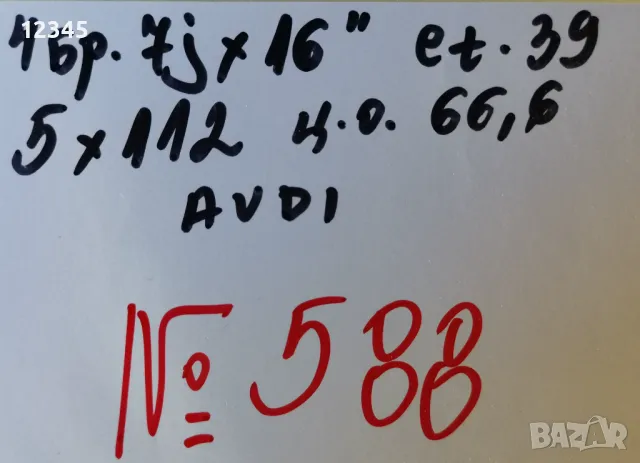 12345
1бр. 7j x 16" et. 39
5 x 112 ц.о. 66,6
AUDI
№ 588
BAZAR